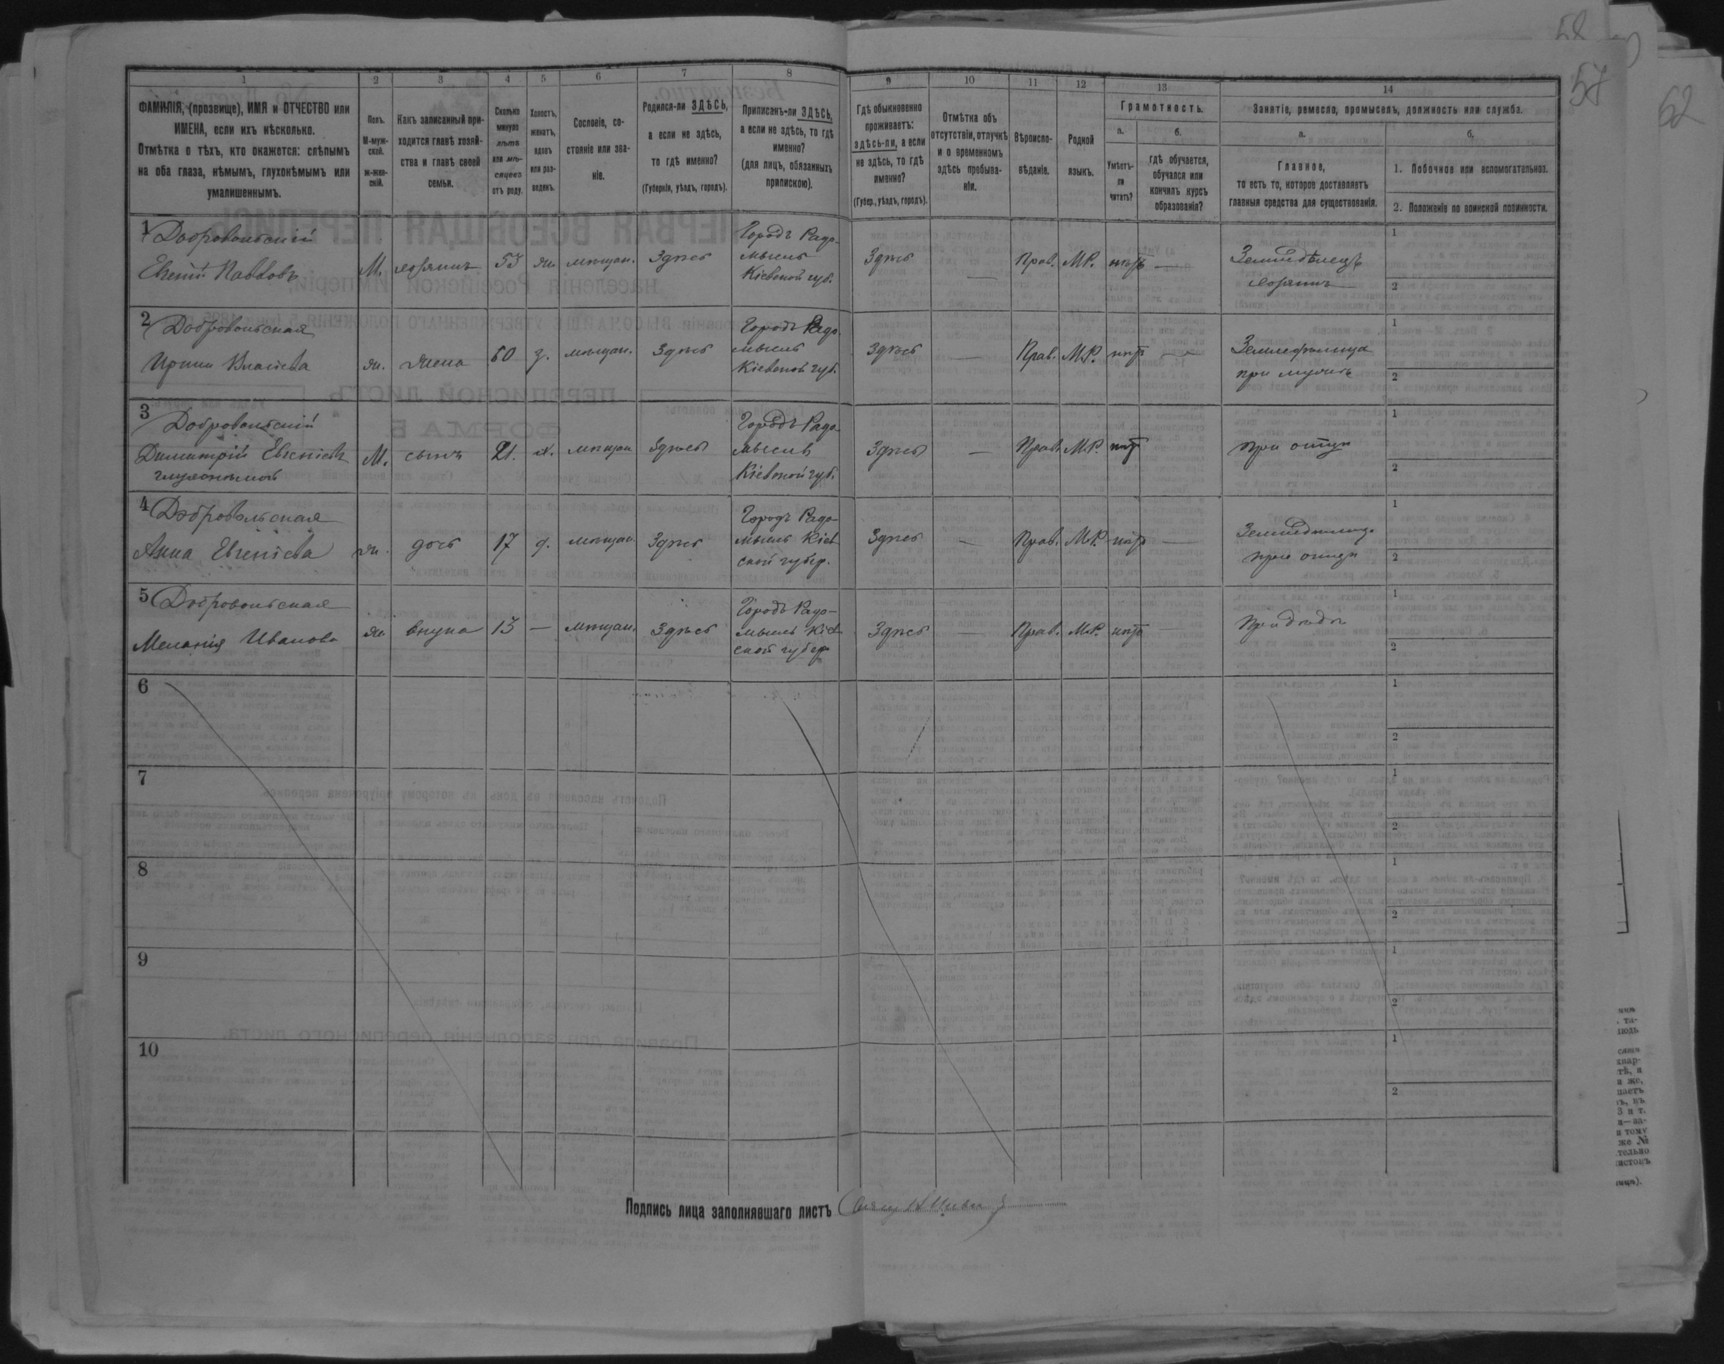 58
57
62
1 2 3 4 5 6 7 8 9 10 11 12 13 14
ФАМИЛІЯ, (прозвище), ИМЯ и ОТЧЕСТВО или
ИМЕНА, если ихъ нѣсколько.
Отмѣтка о тѣхъ, кто окажется: слѣпымъ
на оба глаза, нѣмымъ, глухонѣмымъ или
умалишеннымъ.
Полъ.
М-муж-
ской.
ж-жен-
скій.
Какъ записанный при-
ходится главѣ хозяй-
ства и главѣ своей
семьи.
Сколько
минуло
лѣтъ
или мѣ-
сяцевъ
отъ роду.
Холостъ,
женатъ,
вдовъ
или раз-
веденъ.
Сословіе, со-
стояніе или зва-
ніе.
Родился-ли ЗДѢСЬ,
а если не здѣсь,
то гдѣ именно?
(Губернія, уѣздъ, городъ).
Приписанъ-ли ЗДѢСЬ,
а если не здѣсь, то гдѣ
именно?
(для лицъ, обязанныхъ
припискою).
Гдѣ обыкновенно
проживаетъ:
здѣсь-ли, а если
не здѣсь, то гдѣ
именно?
(Губер., уѣздъ, городъ).
Отмѣтка объ
отсутствіи, отлучкѣ
и о временномъ
здѣсь пребыва-
ніи.
Вѣроиспо-
вѣданіе.
Родной
языкъ.
Грамотность.
а.
Умѣетъ-
ли
читать?
б.
гдѣ обучается,
обучался или
кончилъ курсъ
образованія?
Занятіе, ремесло, промыселъ, должность или служба.
а.
Главное,
то есть то, которое доставляетъ
главныя средства для существованія.
б.
1. Побочное или вспомогательное.
2. Положеніе по воинской повинности.
1 Добровольскій
Евгеній Павловъ
М. хозяинъ 53 ж. мѣщан. Здѣсь
Городъ Радо-
мысль
Кіевской губ.
Здѣсь — Прав. М.Р. нѣтъ —
Земледѣлецъ
хозяинъ
1
2
2 Добровольская
Ирина Власіева
ж. жена 60 з. мѣщан. Здѣсь
Городъ Радо-
мысль
Кіевской губ.
Здѣсь — Прав. М.Р. нѣтъ —
Земледѣлица
при мужѣ
1
2
3 Добровольскій
Димитрій Евгеніевъ
глухонѣмой
М. сынъ 21. х. мѣщан Здѣсь
Городъ Радо-
мысль
Кіевской губ.
Здѣсь — Прав. М.Р. нѣтъ
при отцѣ
1
2
4 Добровольская
Анна Евгеніева
ж. дочь 17 д. мѣщан. Здѣсь
Городъ Радо-
мысль Кіев
ской губер.
Здѣсь — Прав. М.Р. нѣтъ —
Земледѣлица
при отцѣ
1
2
5 Добровольская
Меланія Иванова
ж. внука 13 — мѣщан. Здѣсь
Городъ Радо-
мысль Кіев
ской губер
Здѣсь — Прав. М.Р. нѣтъ —
При дѣдѣ
1
2
6
1
2
7
1
2
8
1
2
9
1
2
10
1
2
Подпись лица заполнявшаго листъ